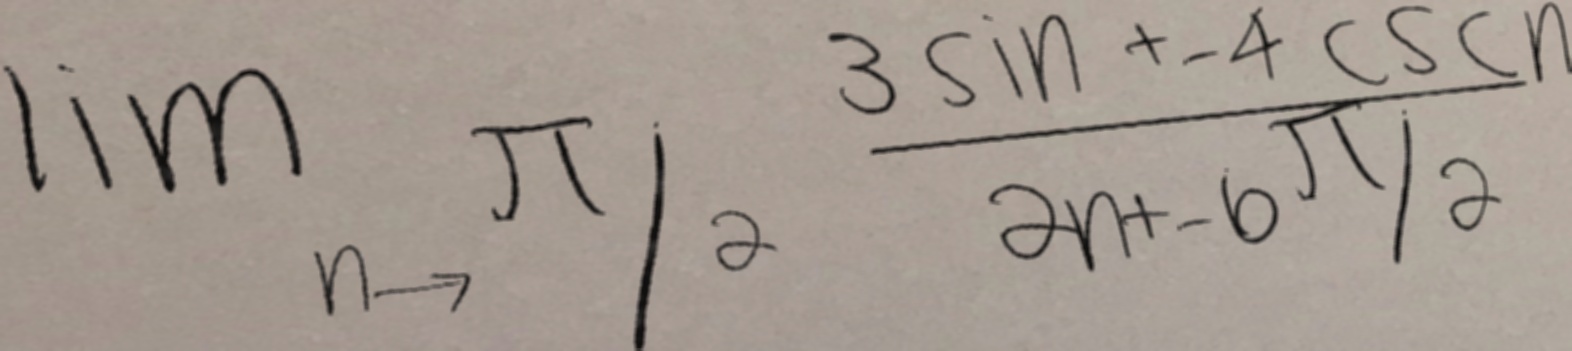 lim n→ π/2 3 sin + -4 cscn / 2n+-6 π/2